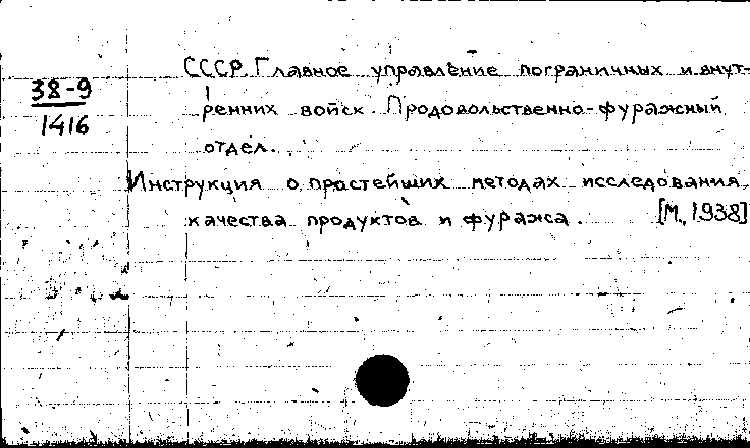 СССР. Главное управление пограничных и внут-
38-9
ренних войск. Продовольственно-фуражный
1416
отдел.
Инструкция о простейших методах исследования
качества продуктов и фуража. [М., 1938]